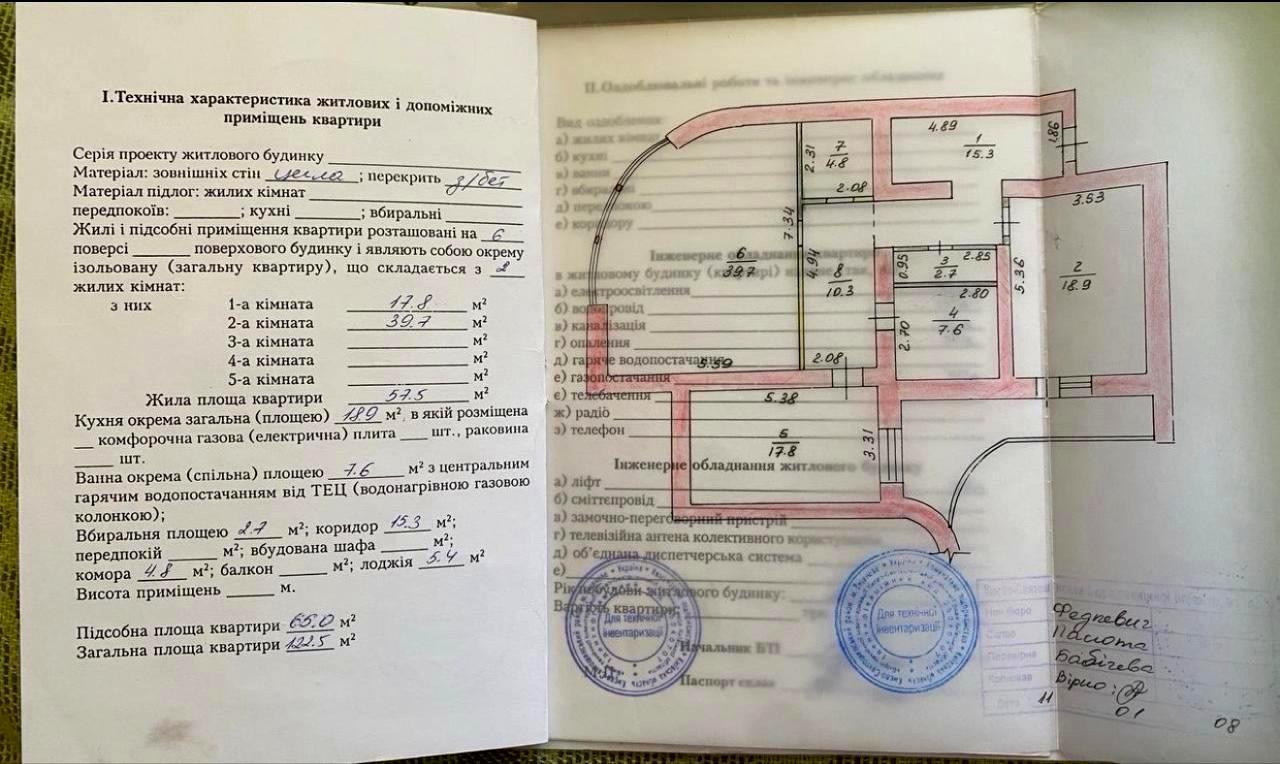 І.Технічна характеристика житлових і допоміжних
приміщень квартири
Серія проекту житлового будинку
Матеріал: зовнішніх стін цегла ; перекрить з/бет
Матеріал підлог: жилих кімнат
передпокоїв: ; кухні ; вбиральні
Жилі і підсобні приміщення квартири розташовані на 6
поверсі поверхового будинку і являють собою окрему
ізольовану (загальну квартиру), що складається з 2
жилих кімнат:
з них 1-а кімната 17.8 м²
2-а кімната 39.7 м²
3-а кімната м²
4-а кімната м²
5-а кімната м²
Жила площа квартири 57.5 м²
Кухня окрема загальна (площею) 18.9 м², в якій розміщена
комфорочна газова (електрична) плита шт., раковина
шт.
Ванна окрема (спільна) площею 7.6 м² з центральним
гарячим водопостачанням від ТЕЦ (водонагрівною газовою
колонкою);
Вбиральня площею 2.7 м²; коридор 15.3 м²;
передпокій м²; вбудована шафа м²;
комора 4.8 м²; балкон м²; лоджія 5.4 м²
Висота приміщень м.
Підсобна площа квартири 65.0 м²
Загальна площа квартири 122.5 м²
ІІ.Оздоблювальні роботи та інженерне обладнання
Вид оздоблення:
а) жилих кімнат
б) кухні
в) ванни
г) вбиральні
д) передпокою
е) коридору
Інженерне обладнання квартири
в житловому будинку (квартирі)
а) електроосвітлення
б) водопровід
в) каналізація
г) опалення
д) гаряче водопостачання
е) газопостачання
є) телебачення
ж) радіо
з) телефон
Інженерне обладнання житлового будинку
а) ліфт
б) сміттєпровід
в) замочно-переговорний пристрій
г) телевізійна антена колективного користування
д) об'єднана диспетчерська система
е)
Рік побудови житлового будинку:
Вартість квартири:
Начальник БТІ
Паспорт склав
4.89
1
15.3
1.86
7
4.8
2.31
2.08
3.53
2
18.9
5.36
6
39.7
7.34
5.59
4.94
8
10.3
2.08
0.95
3
2.7
2.85
2.80
4
7.6
2.70
5.38
5
17.8
3.31
Для технічної
інвентаризації
Для технічної
інвентаризації
Нач бюро
Перевірив
Копіював
Дата 11 01 08
Пасюта
Бабічева
Вірно: